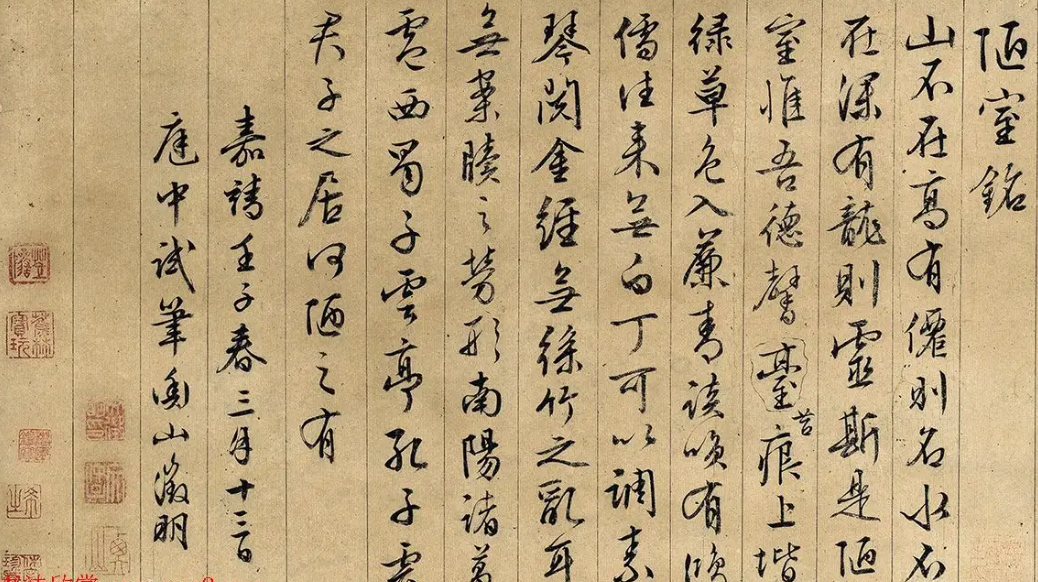 陋室銘
山不在高有僊則名水不
在深有龍則靈斯是陋
室惟吾德馨臺苔痕上堦
緑草色入簾青談咲有鴻
儒往来無白丁可以調素
琴閲金經無絲竹之亂耳
無案牘之勞形南陽諸葛
廬西蜀子雲亭孔子云
君子之居何陋之有
嘉靖壬子春三月十三日
庭中試筆衡山徵明